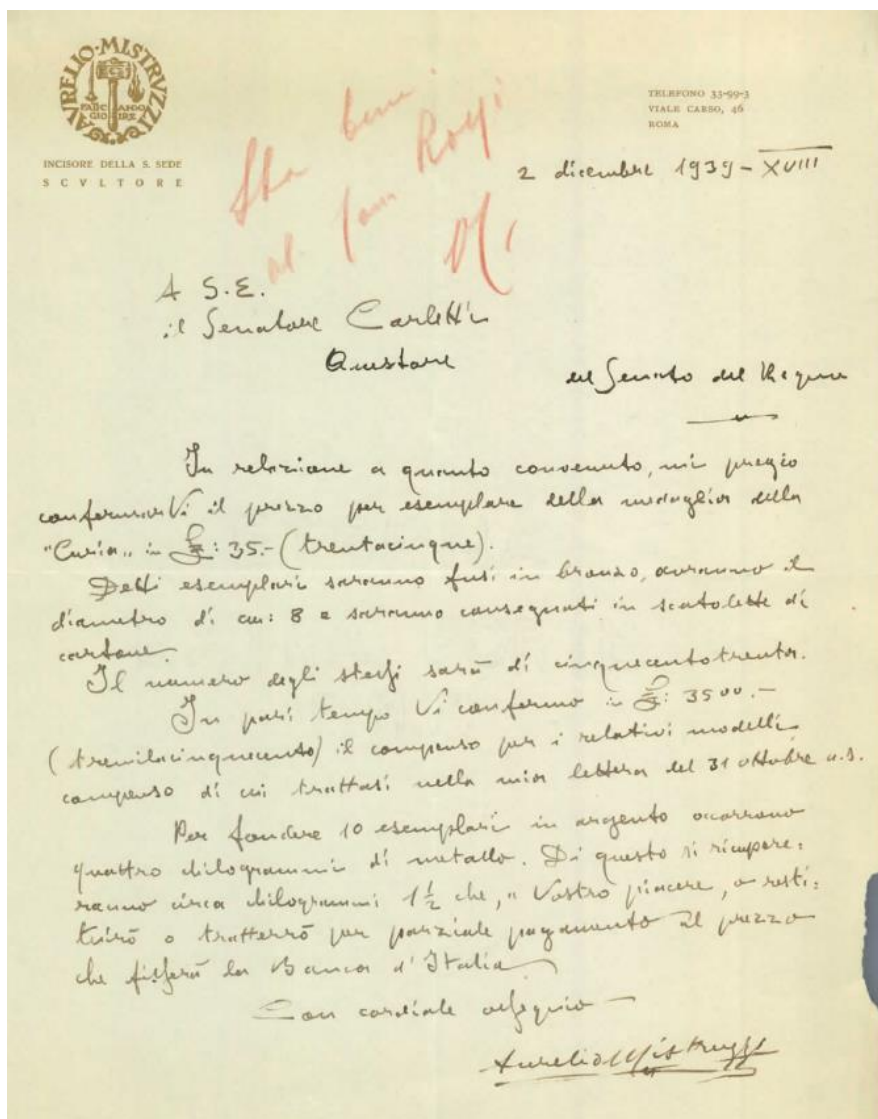 AVRELIO·MISTRVZZI
FABC ANGO
GIO IRE
INCISORE DELLA S. SEDE
SCVLTORE
TELEFONO 33-99-3
VIALE CARSO, 46
ROMA
Sta bene
al Com Rossi
2 dicembre 1939-XVIII
A S.E.
il Senatore Carletti
Questore
del Senato del Regno
In relazione a quanto convenuto, mi pregio
confermarVi il prezzo per esemplare della medaglia della
"Curia" in £: 35.- (trentacinque).
Detti esemplari saranno fusi in bronzo, avranno il
diametro di cm: 8 e saranno consegnati in scatolette di
cartone.
Il numero degli stessi sarà di cinquecentotrenta.
In pari tempo Vi confermo in £: 3500.-
(tremilacinquecento) il compenso per i relativi modelli
compenso di cui trattasi nella mia lettera del 31 ottobre u.s.
Per fondere 10 esemplari in argento occorrono
quattro chilogrammi di metallo. Di questo si ricupere=
ranno circa chilogrammi 1½ che, a Vostro piacere, o resti=
tuirò o tratterrò per parziale pagamento al prezzo
che fisserà la Banca d'Italia
Con cordiale ossequio
Aurelio Mistruzzi